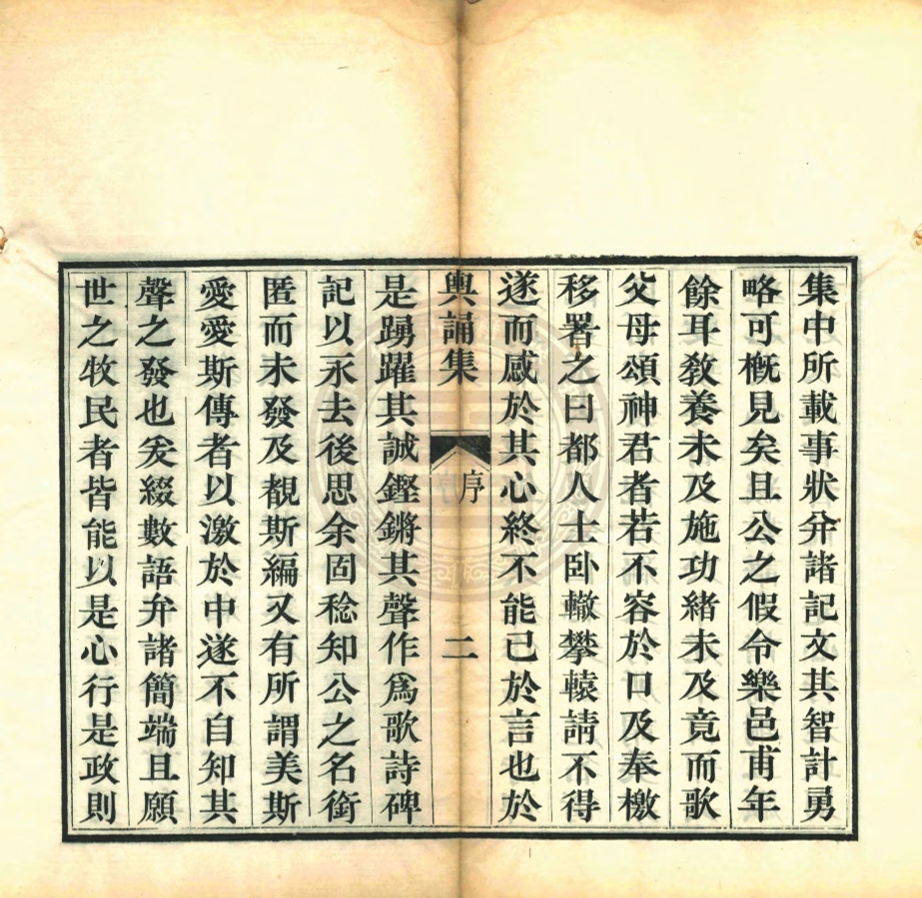 集中所載事狀分諸記文其智計勇
略可概見矣且公之假令樂邑甫年
餘耳敎養未及施功緒未及竟而歌
父母頌神君者若不容於口及奉檄
移署之日都人士卧轍攀轅請不得
遂而感於其心終不能已於言也於
輿誦集
序
二
是踴躍其誠鏗鏘其聲作爲歌詩碑
記以永去後思余固稔知公之名銜
匿而未發及覩斯編又有所謂美斯
愛愛斯傳者以激於中遂不自知其
聲之發也爰綴數語弁諸簡端且願
世之牧民者皆能以是心行是政則